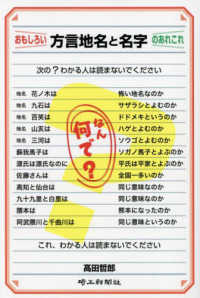 おもしろい 方言地名と名字 のあれこれ
次の?わかる人は読まないでください
地名 花ノ木は 怖い地名なのか
地名 九石は サザラシとよむのか
地名 百笑は ドドメキというのか
地名 山実は ハゲとよむのか
地名 三河は ソウゴとよむのか
蘇我馬子は ソガノ馬子とよぶのか
源氏は源氏なのに 平氏は平家とよぶのか
佐藤さんは 全国一多いのか
高知と仙台は 同じ意味なのか
九十九里と白里は 同じ意味なのか
隈本は 熊本になったのか
阿武隈川と千曲川は 同じ意味というのか
なん
何で?
これ、わかる人は読まないでください
髙田哲郎
埼玉新聞社